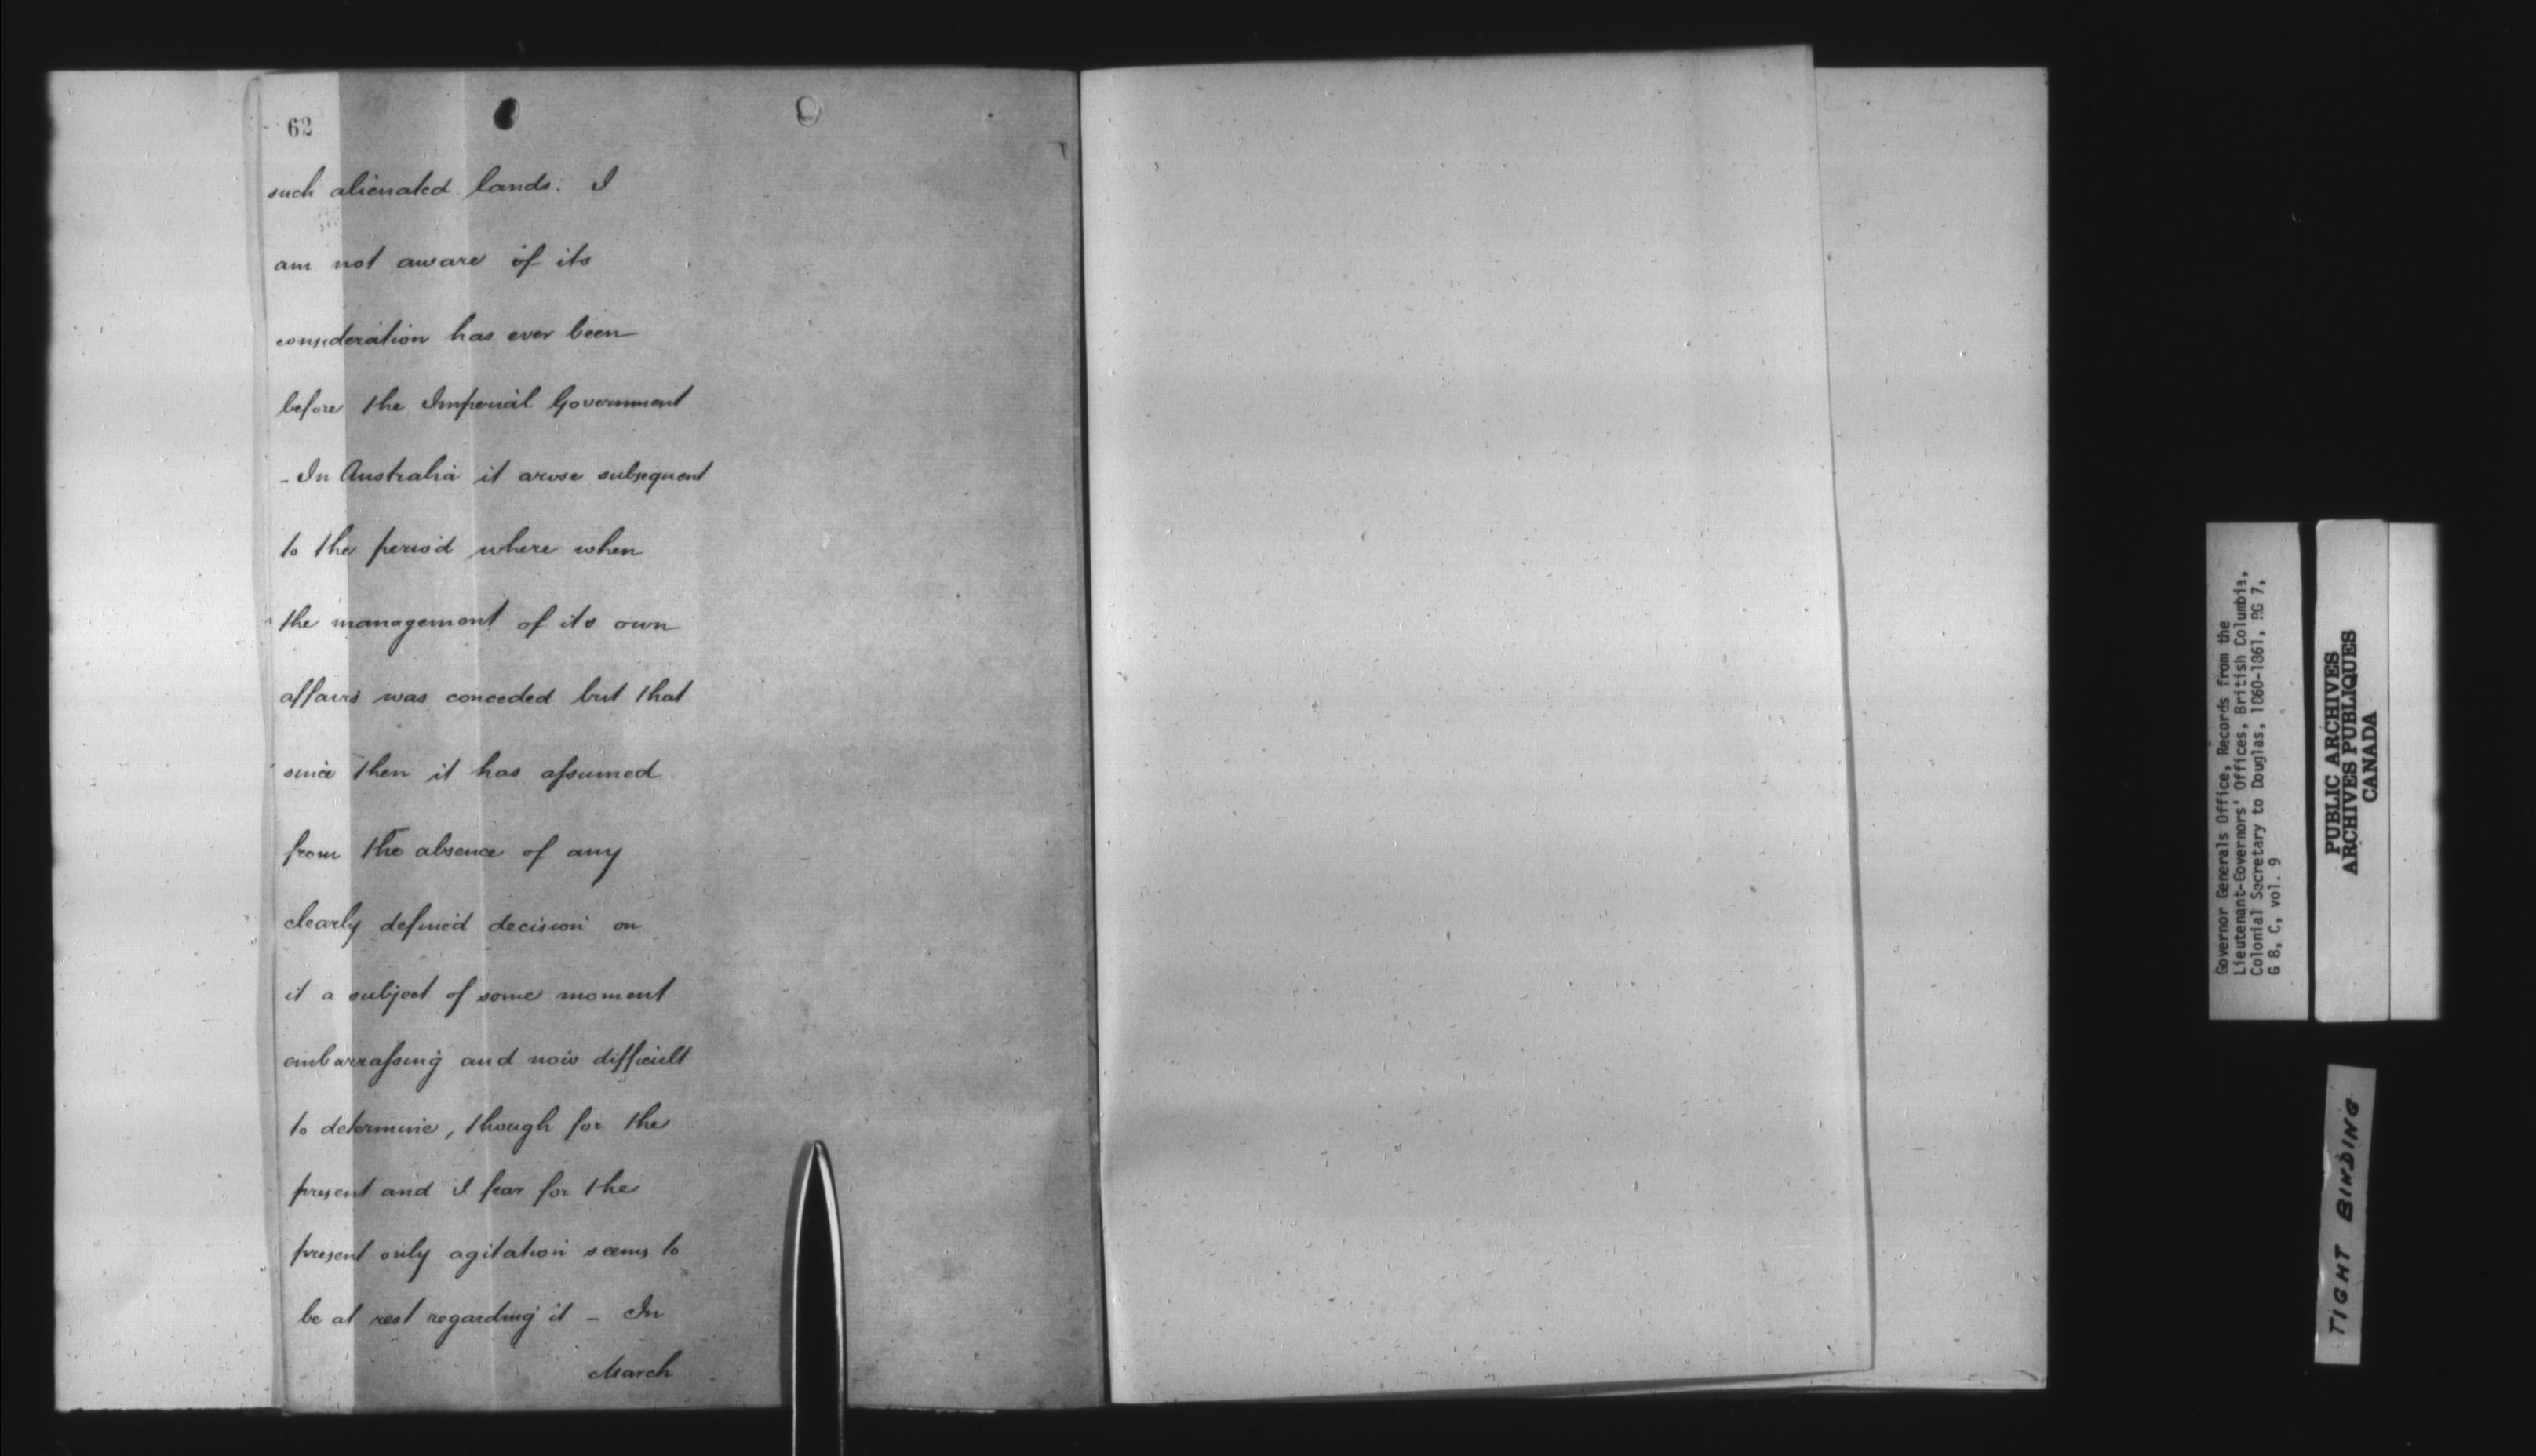 62
such alienated lands. I
am not aware of its
consideration has ever been
before the Imperial Government
- In Australia it arose subsequent
to the period where when
the management of its own
affairs was conceded but that
since then it has assumed
from the absence of any
clearly defined decision on
it a subject of some moment
embarrassing and now difficult
to determine, though for the
present and I fear for the
present only agitation seems to
be at rest regarding it - In
March
Governor Generals Office, Records from the
Lieutenant-Governors' Offices, British Columbia,
Colonial Secretary to Douglas, 1860-1861, RG 7,
G 8, C, vol. 9
PUBLIC ARCHIVES
ARCHIVES PUBLIQUES
CANADA
TIGHT BINDING